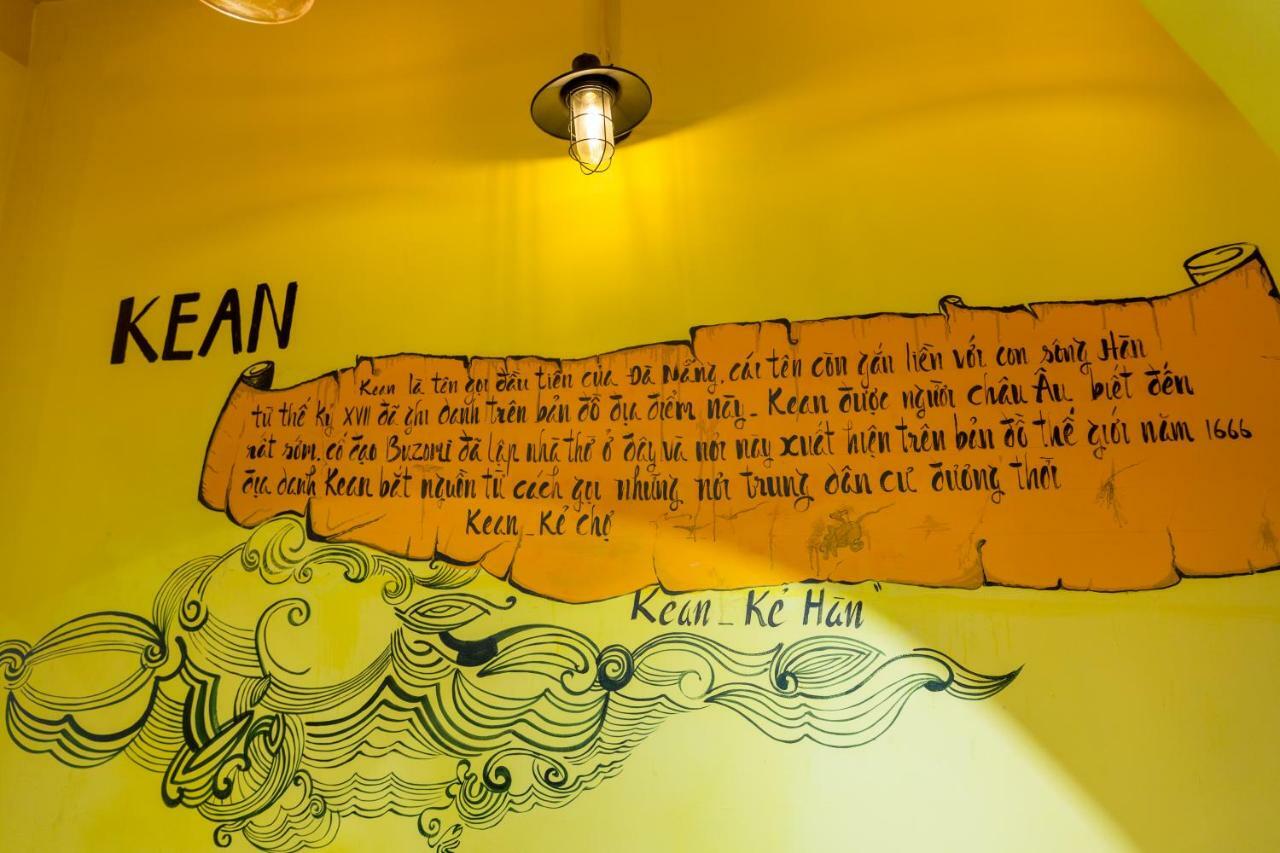 KEAN
Kean là tên gọi đầu tiên của Đà Nẵng, cái tên còn gắn liền với con sông Hàn
từ thế kỷ XVII đã ghi danh trên bản đồ địa điểm này_ Kean được người châu Âu biết đến
rất sớm. cố đạo Buzomi đã lập nhà thờ ở đây và nơi này xuất hiện trên bản đồ thế giới năm 1666
địa danh Kean bắt nguồn từ cách gọi những nơi trung dân cư đương thời
Kean_Kẻ chợ
Kean_Kẻ Hàn"